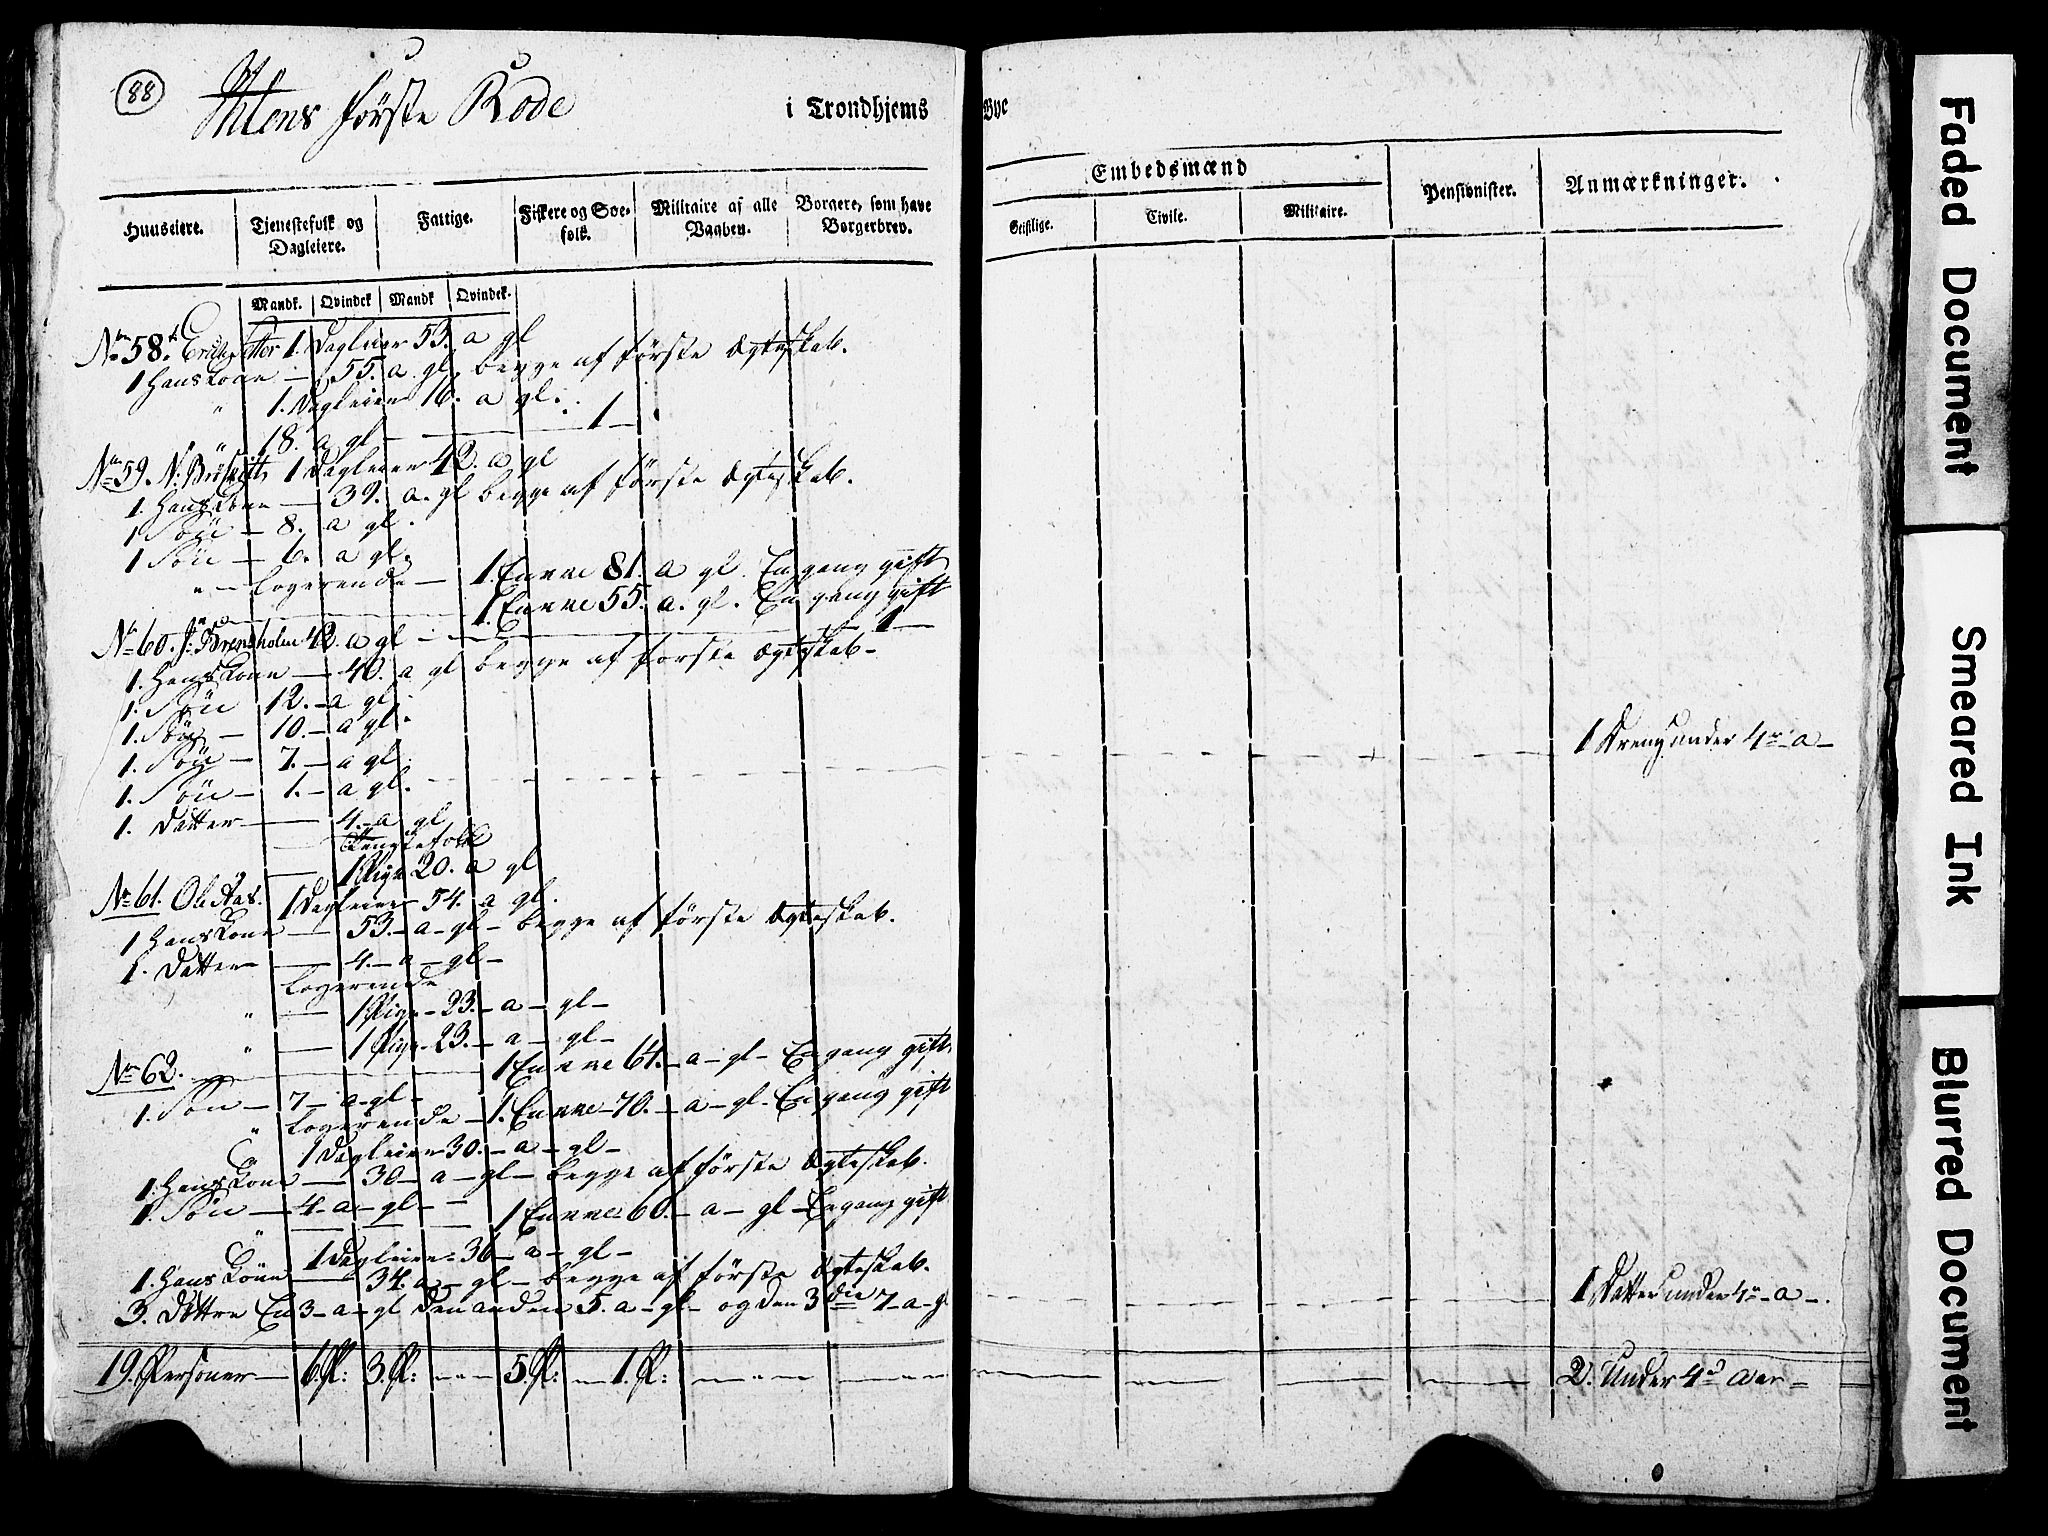 88
Ihlens første Rode
i Trondhjems
Bye
Huuseiere.
Tjenestefolk og Dagleiere.
Fattige.
Fiskere og Søefolk.
Militaire af alle Vaaben.
Borgere, som have Borgerbrev.
Embedsmænd
Geistlige.
Civile.
Militaire.
Pensionister.
Anmærkninger.
Mandk. Qvindek Mandk Qvindek.
No 58. 1. Dagleier 53. a gl
1 Hans Kone — 55. a gl. begge af første Ægteskab.
" 1. Dagleier 16. a gl.
" 18. a gl — 1 —
No 59. N. 1 Dagleier 42. a gl
1. Hans Kone — 39. a. gl begge af første Ægteskab.
1 Søn — 8. a gl.
1 Søn — 6. a gl.
" — Logerende — 1. Enke 81. a gl. En gang gift
1. Enke 55. a. gl. En gang gift
No 60. J. Brensholm 42. a gl — 1 —
1. Hans Kone — 40. a gl begge af første Ægteskab —
1. Søn 12. — a gl.
1. Søn — 10. — a gl.
1. Søn — 7. — a gl.
1. Søn — 1. — a gl.
1 Dreng under 4r a —
1. Datter — 4. — a gl
1 Pige 20. a gl
No 61. Ole Aas. 1 Dagleier 54. a gl.
1 Hans Kone — 53. — a — gl — begge af første Ægteskab.
1. Datter — 4. — a — gl —
Logerende
" — 1 Pige — 23. — a — gl —
" — 1 Pige — 23. — a — gl —
No 62. — 1 Enke 64. — a — gl — En gang gift
1. Søn — 7 — a — gl —
" Logerende — 1. Enke — 70. — a — gl — En gang gift
" 1 Dagleier 30. — a — gl —
1. Hans Kone — 30 — a — gl — begge af første Ægteskab.
1. Søn — 4 — a — gl —
" 1 Enke 60. — a — gl — En gang gift
" 1 Dagleier — 36 — a — gl —
1. Hans Kone — 34. a — gl — begge af første Ægteskab.
3. Døttre En 3 — a — gl den anden 5. a — gl — og den 3die 7 — a — gl
1 Datter under 4r — a —.
19. Personer — 6. P: 3. P: — 5. P: — 1. P: — 2. Under 4 Aar —
Faded Document
Smeared Ink
Blurred Document